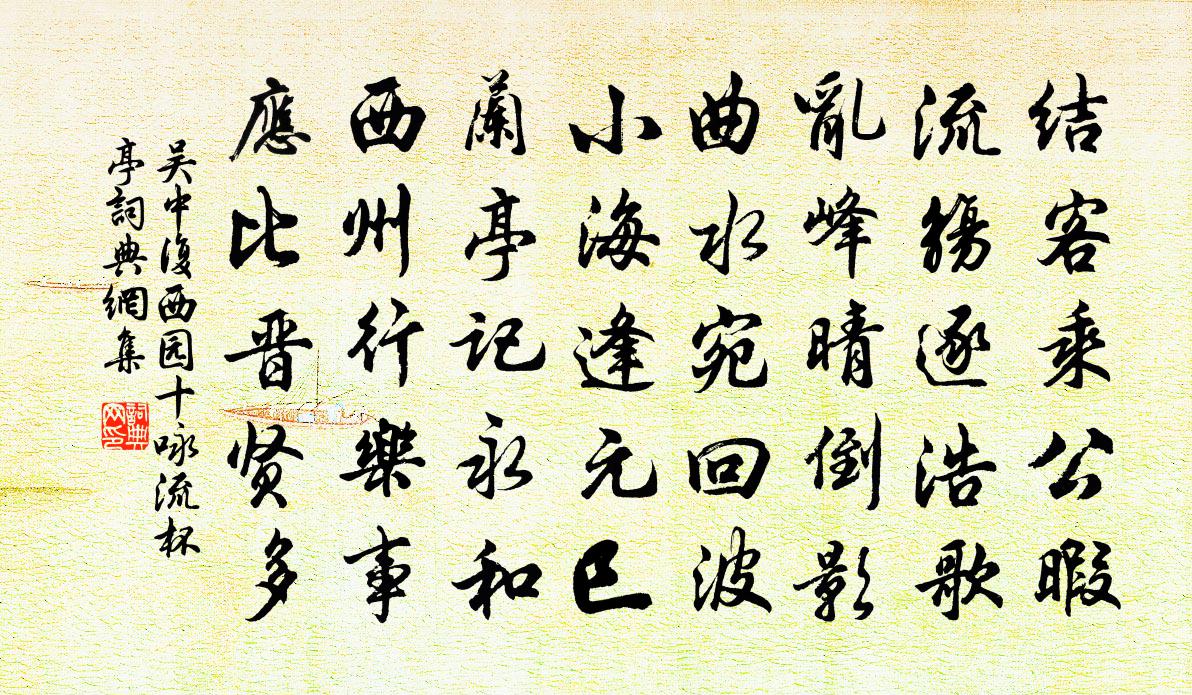 结客乘公暇
流觞逐浩歌
亂峰晴倒影
曲水宛回波
小海逢元巳
蘭亭記永和
西州行樂事
應比晋贤多
吴中復西园十咏流杯
亭詞典網集
詞典
网印